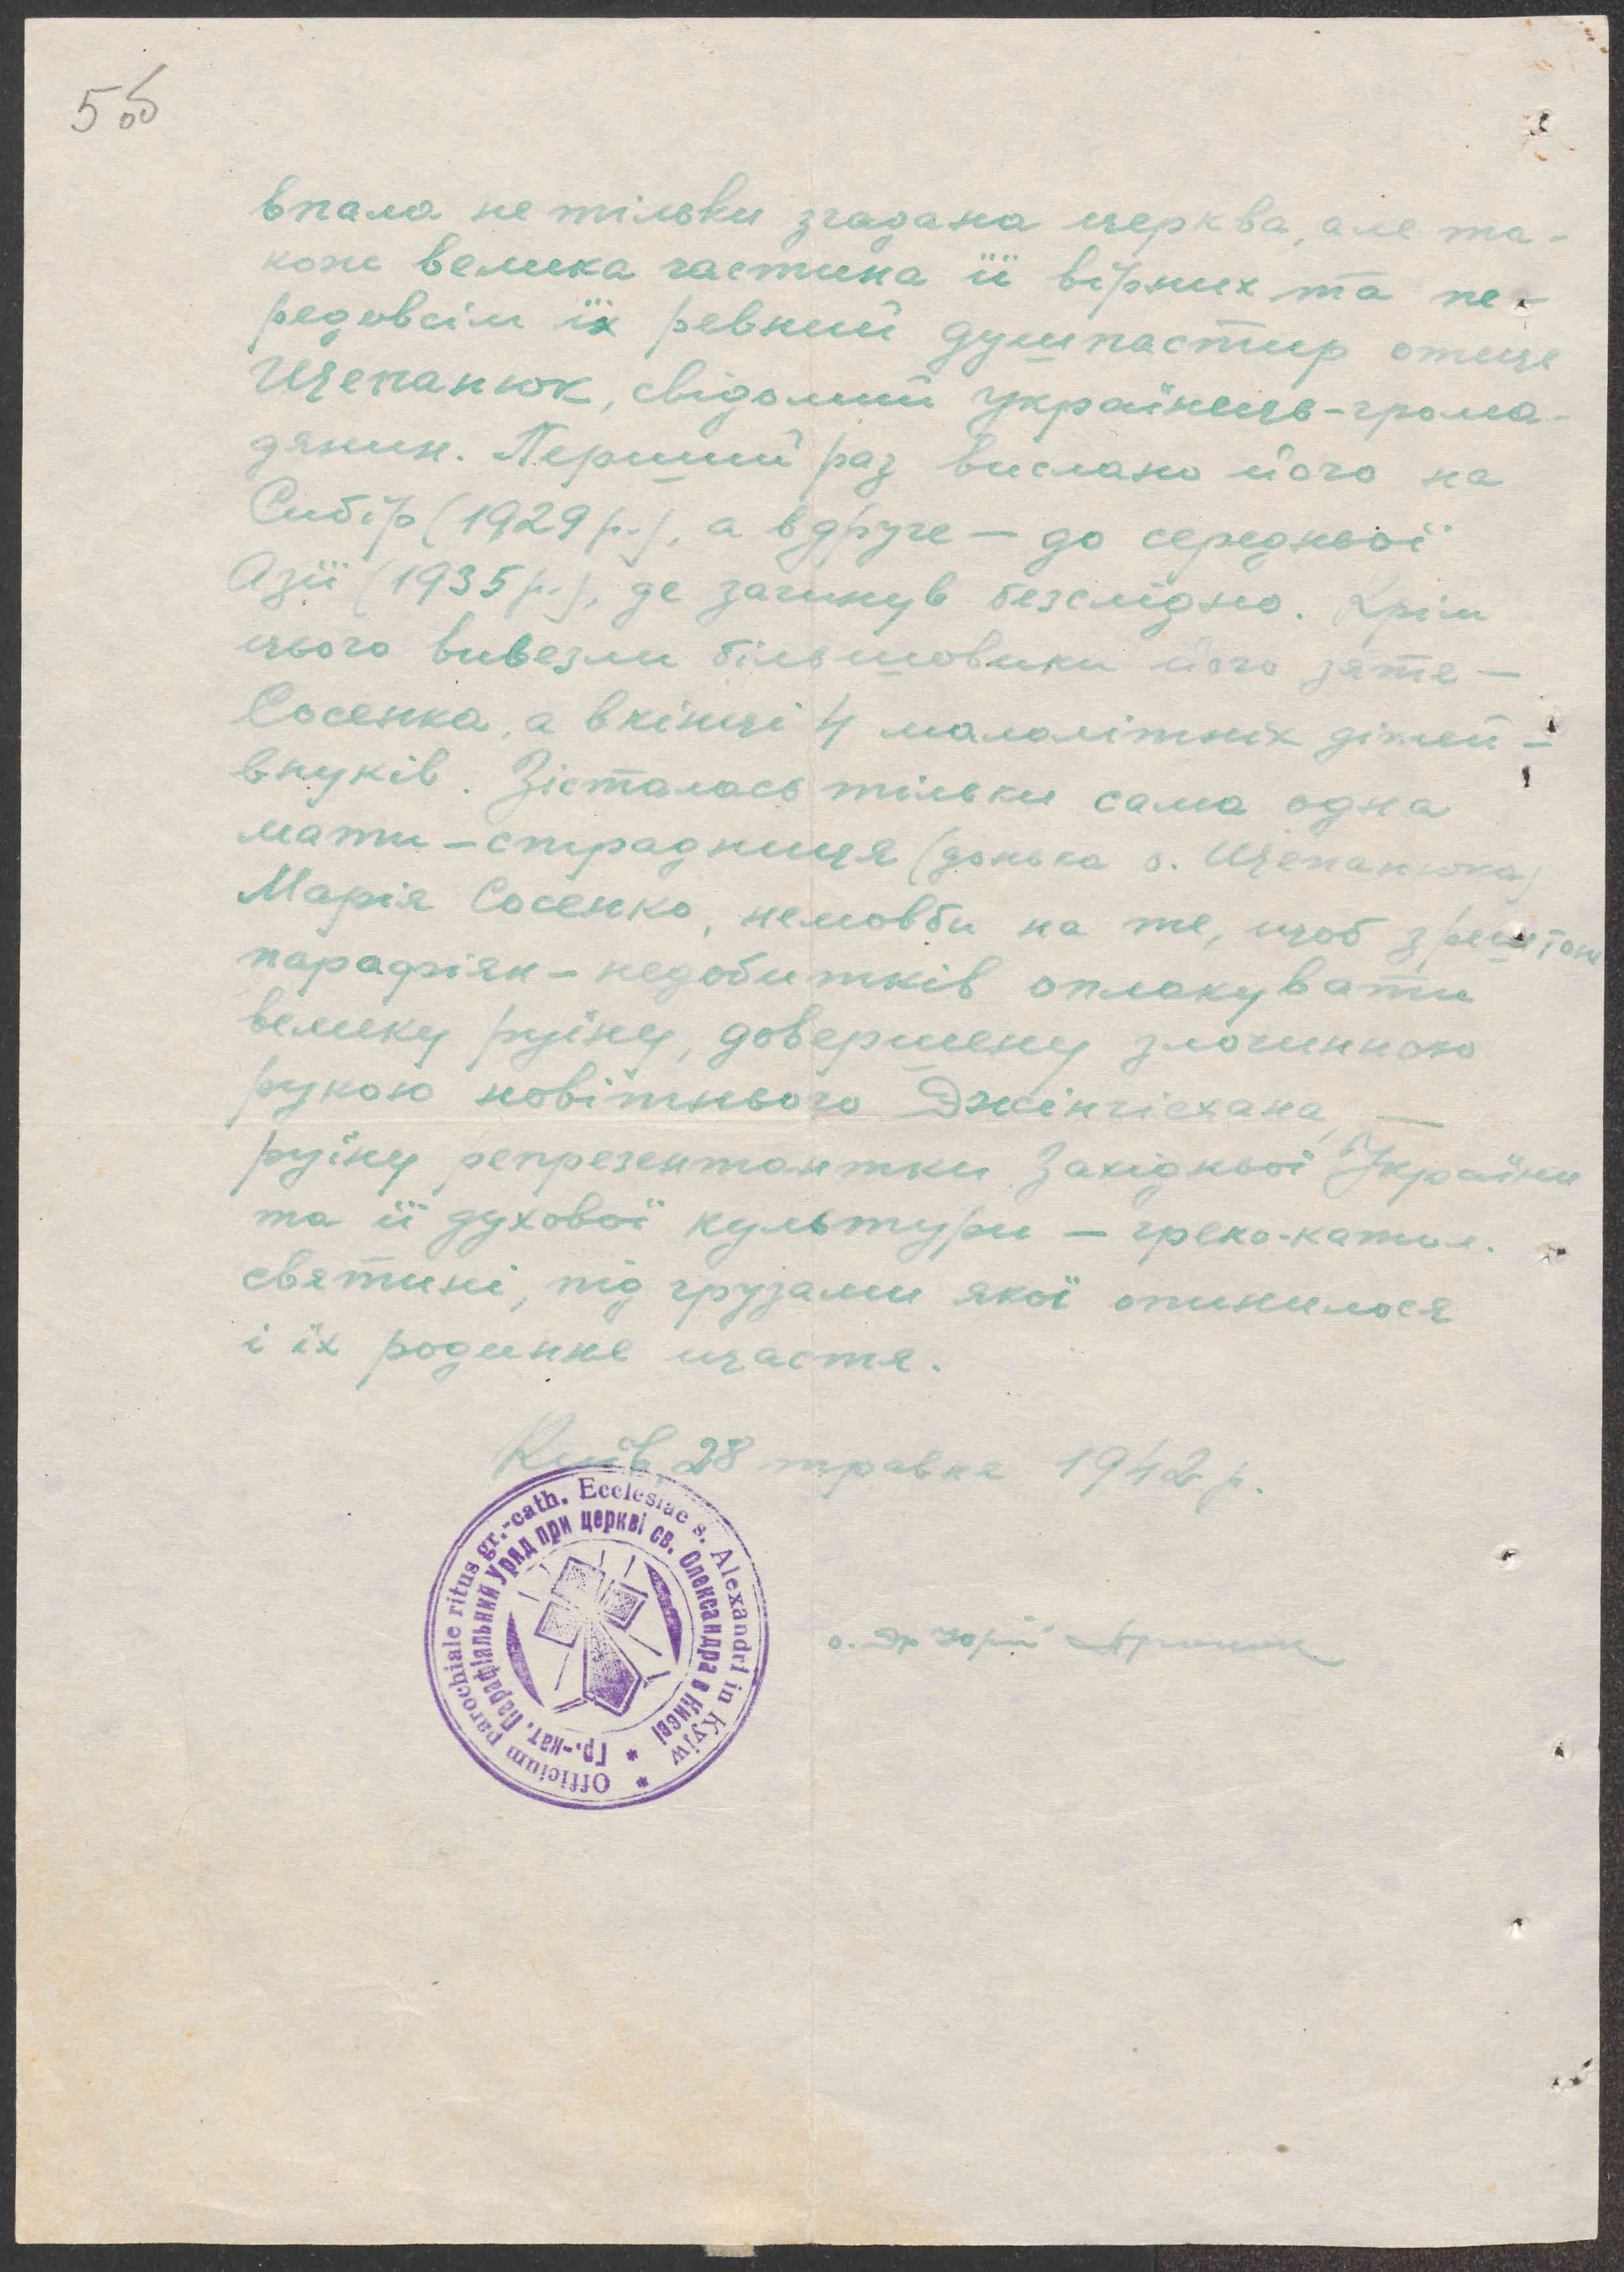 5об
впала не тільки згадана церква, але та-
кож велика частина її вірних та пе-
редовсім їх ревний душпастир отець
Щепанюк, свідомий українець-грома-
дянин. Перший раз вислано його на
Сибір (1929 р.), а вдруге — до середньої
Азії (1935 р.), де загинув безслідно. Крім
цього вивезли більшовики його зятя —
Сосенка, а вкінці 4 малолітніх дітей —
внуків. Зісталась тільки сама одна
мати-страдниця (донька о. Щепанюка)
Марія Сосенко, немовби на те, щоб з рештою
парафіян-недобитків оплакувати
велику руїну, довершену злочинною
рукою новітнього Джінгісхана, —
руїну репрезентантки Західньої України
та її духової культури — греко-катол.
святині, під грузами якої опинилося
і їх родинне щастя.
Київ, 28 травня 1942 р.
Officium parochiale ritus gr.-cath. Ecclesiae s. Alexandri in Kyjiw *
Гр.-кат. Парафіальний Уряд при церкві св. Олександра в Києві *
о. Др Юрій